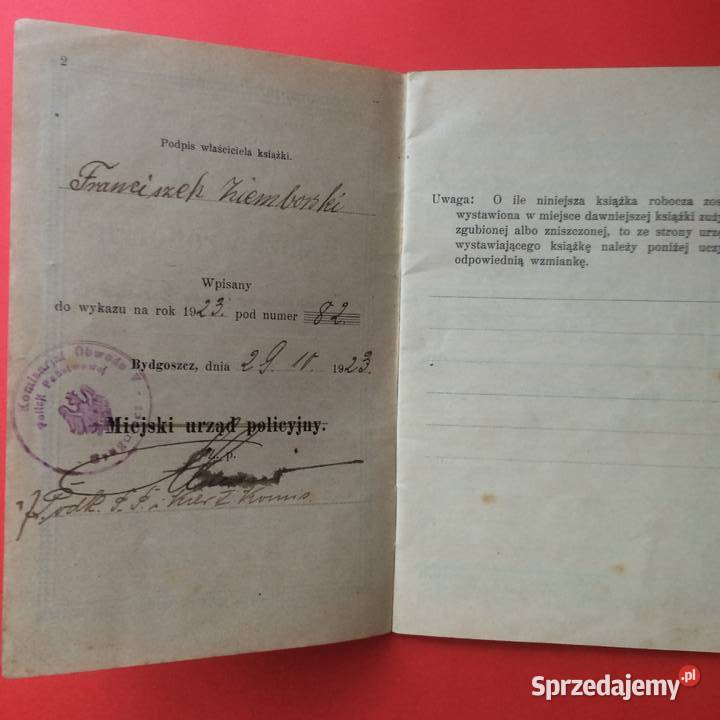 2
Podpis właściciela książki.
Franciszek Ziemborski
Wpisany
do wykazu na rok 1923. pod numer 82.
Bydgoszcz, dnia 29. 10 1923.
Komisarjat Obwodu
Policji Państwowej
Miejski urząd policyjny.
p.
Podk. P.P. i Kier I Komis.
Uwaga: O ile niniejsza książka robocza zos
wystawiona w miejsce dawniejszej książki zuży
zgubionej albo zniszczonej, to ze strony urzę
wystawiającego książkę należy poniżej uczy
odpowiednią wzmiankę.
Sprzedajemy.pl